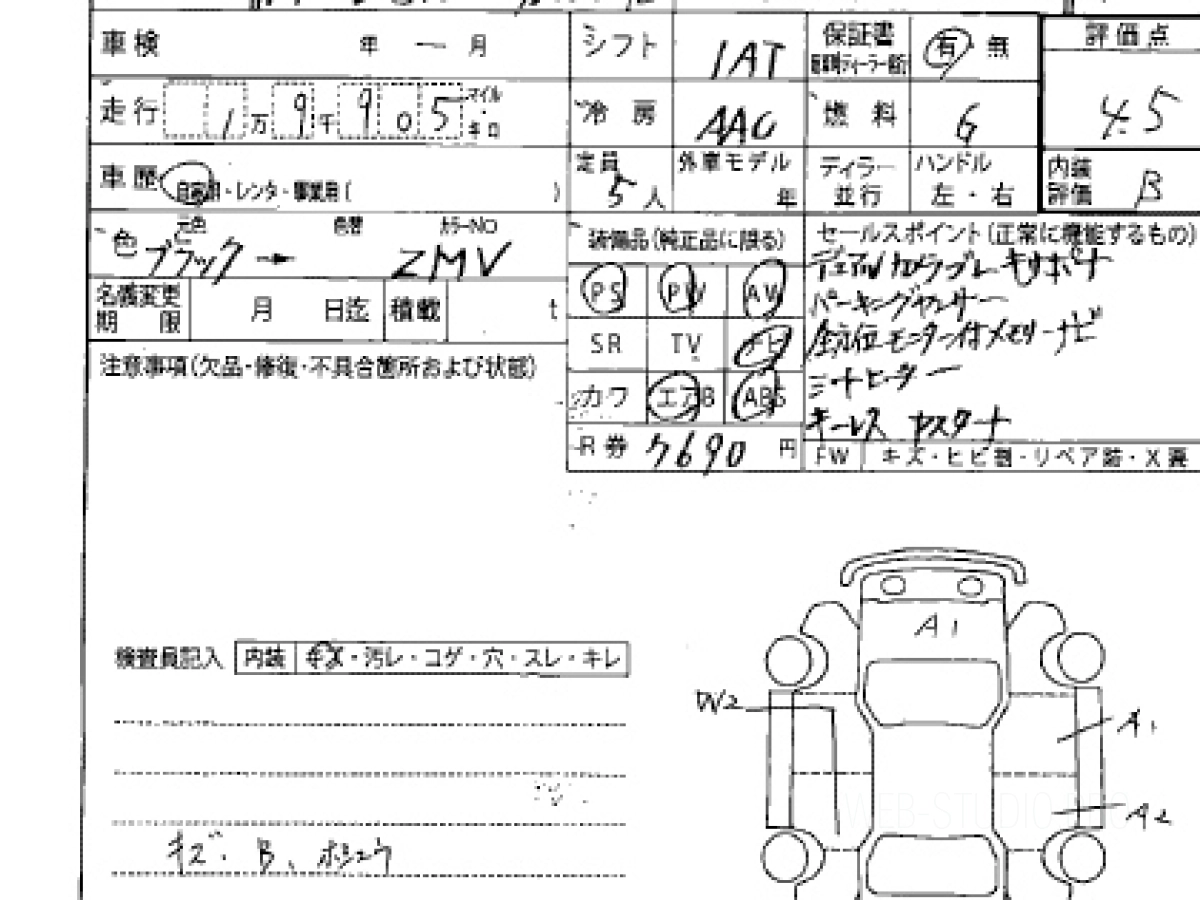 車検 年 ー 月 シフト IAT 保証書 有 無 評価点
走行 1万 9千 9 0 5 マイル・キロ 冷房 AAC 燃料 G 4.5
車歴 自家用・レンタ・事業用( ) 定員 5人 外車モデル 年 ディラー 並行 ハンドル 左・右 内装評価 B
色 元色 ブラック → 色替 カラーNO ZMV 装備品(純正品に限る) セールスポイント(正常に機能するもの)
名義変更期限 月 日迄 積載 t PS PW AW デュアルカメラブレーキサポート
パーキングセンサー
SR TV ナビ 全方位モニター付メモリーナビ
注意事項(欠品・修復・不具合箇所および状態) シートヒーター
カワ エアB ABS キーレス
R券 7690 円 FW キズ・ヒビ割・リペア跡・X裏
A1
検査員記入 内装 キズ・汚レ・コゲ・穴・スレ・キレ
W2 A1
A2
キズ. B、